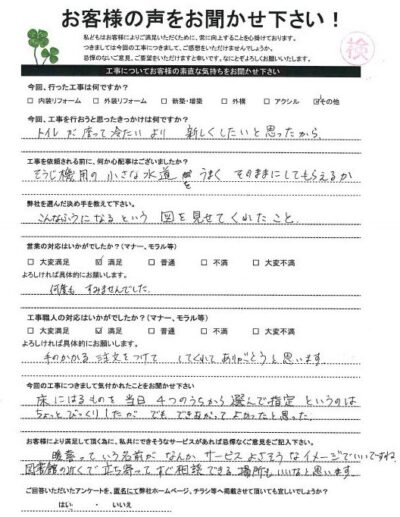 お客様の声をお聞かせ下さい！
私どもはお客様によりご満足いただくために、常に向上することを心掛けております。
つきましては今回の工事につきまして、ご感想をいただけませんでしょうか。
忌憚のないご意見、ご要望をいただけますと幸いです。なにとぞよろしくお願いいたします。
検
工事についてお客様の素直な気持ちをお聞かせ下さい
今回、行った工事は何ですか？
□ 内装リフォーム □ 外装リフォーム □ 新築・増築 □ 外構 □ アクシル ☑その他
今回、工事を行おうと思ったきっかけは何ですか？
トイレが座って冷たいより 新しくしたいと思ったから、
工事を依頼される前に、何か心配事はございましたか？
そうじ機用の小さな水道 を うまく そのままにしてもらえるか
弊社を選んだ決め手を教えて下さい。
こんなふうになるという 図を見せてくれたこと。
営業の対応はいかがでしたか？(マナー、モラル等)
□ 大変満足 ☑ 満足 □ 普通 □ 不満 □ 大変不満
よろしければ具体的にお願いします。
何度も すみませんでした.
工事職人の対応はいかがでしたか？(マナー、モラル等)
□ 大変満足 ☑ 満足 □ 普通 □ 不満 □ 大変不満
よろしければ具体的にお願いします。
手のかかる注文をつけて してくれてありがとうと思います.
今回の工事につきまして気付かれたことをお聞かせ下さい
床にはるものを当日 4つのうちから選んで指定 というのは
ちょっとびっくりしたが でも できあがって よかったと思った.
お客様により満足して頂く為に、私共にできそうなサービスがあれば忌憚なくご意見をご記入下さい。
暖蓄っていう名前が なんか サービスよさそうなイメージでいいですね.
図書館の近くで立ち寄って すぐ相談できる場所も いいなと思います.
ご回答いただいたアンケートを、匿名にて弊社ホームページ、チラシ等へ掲載させて頂いても宜しいでしょうか？
はい ・ いいえ